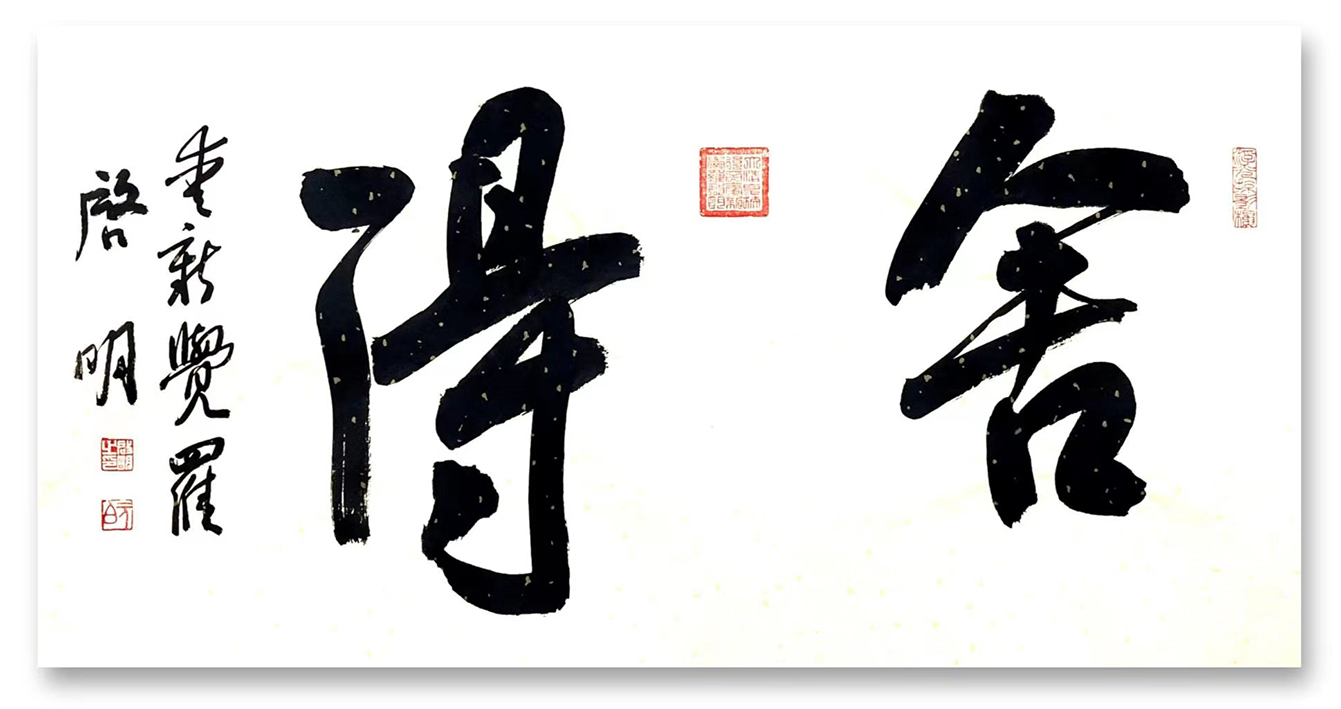 舍得
愛新覺羅
啓明